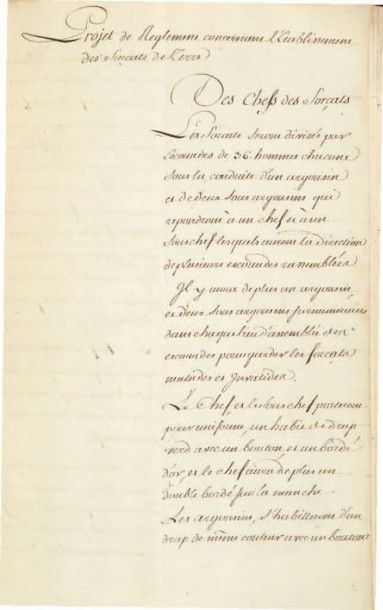 Projet de Reglement concernant l'Etablissement
des Forçats de Terre
Des Chefs des Forçats
Les Forçats seront divisés par
Escouades de 36. hommes chacune
sous la conduite d'un argousin
et de deux sous argousins qui
repondront à un chef et à un
sous chef lesquels auront la direction
de plusieurs escouades rassemblées
Il y aura de plus un argousin
et deux sous argousins surnumeraires
dans chaque lieu d'assemblée des
escouades pour garder les forçats
malades et Invalides.
Le Chef et le sous chef porteront
pour uniforme, un habit de drap
verd avec un bouton et un bordé
d'or, et le chef aura de plus un
double bordé sur la manche.
Les argousins, s'habilleront d'un
drap de même couleur avec un bouton